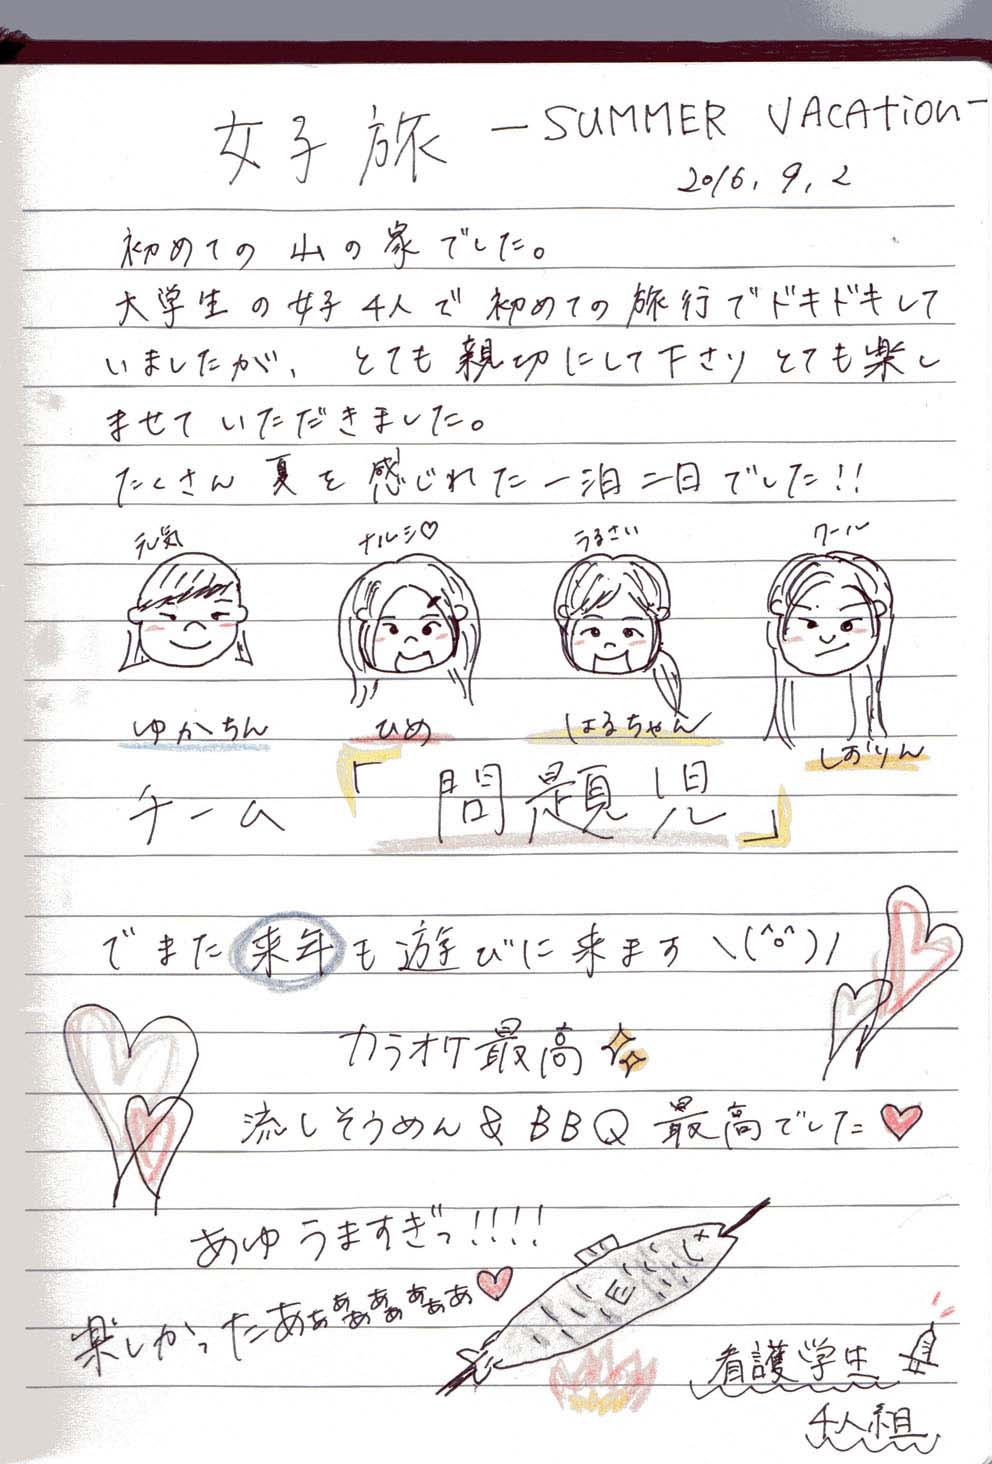 女子旅 -SUMMER VACAtion-
2016. 9. 2
初めての山の家でした。
大学生の女子4人で初めての旅行でドキドキして
いましたが、とても親切にして下さりとても楽し
ませていただきました。
たくさん夏を感じれた一泊二日でした!!
元気 ナルシ♡ うるさい クール
ゆかちん ひめ はるちゃん しおりん
チーム「問題児」
でまた来年も遊びに来ます\(^o^)/
カラオケ最高
流しそうめん&BBQ 最高でした
あゆうますぎっ!!!!
楽しかったあぁぁぁぁぁぁぁぁぁ
看護学生
4人組